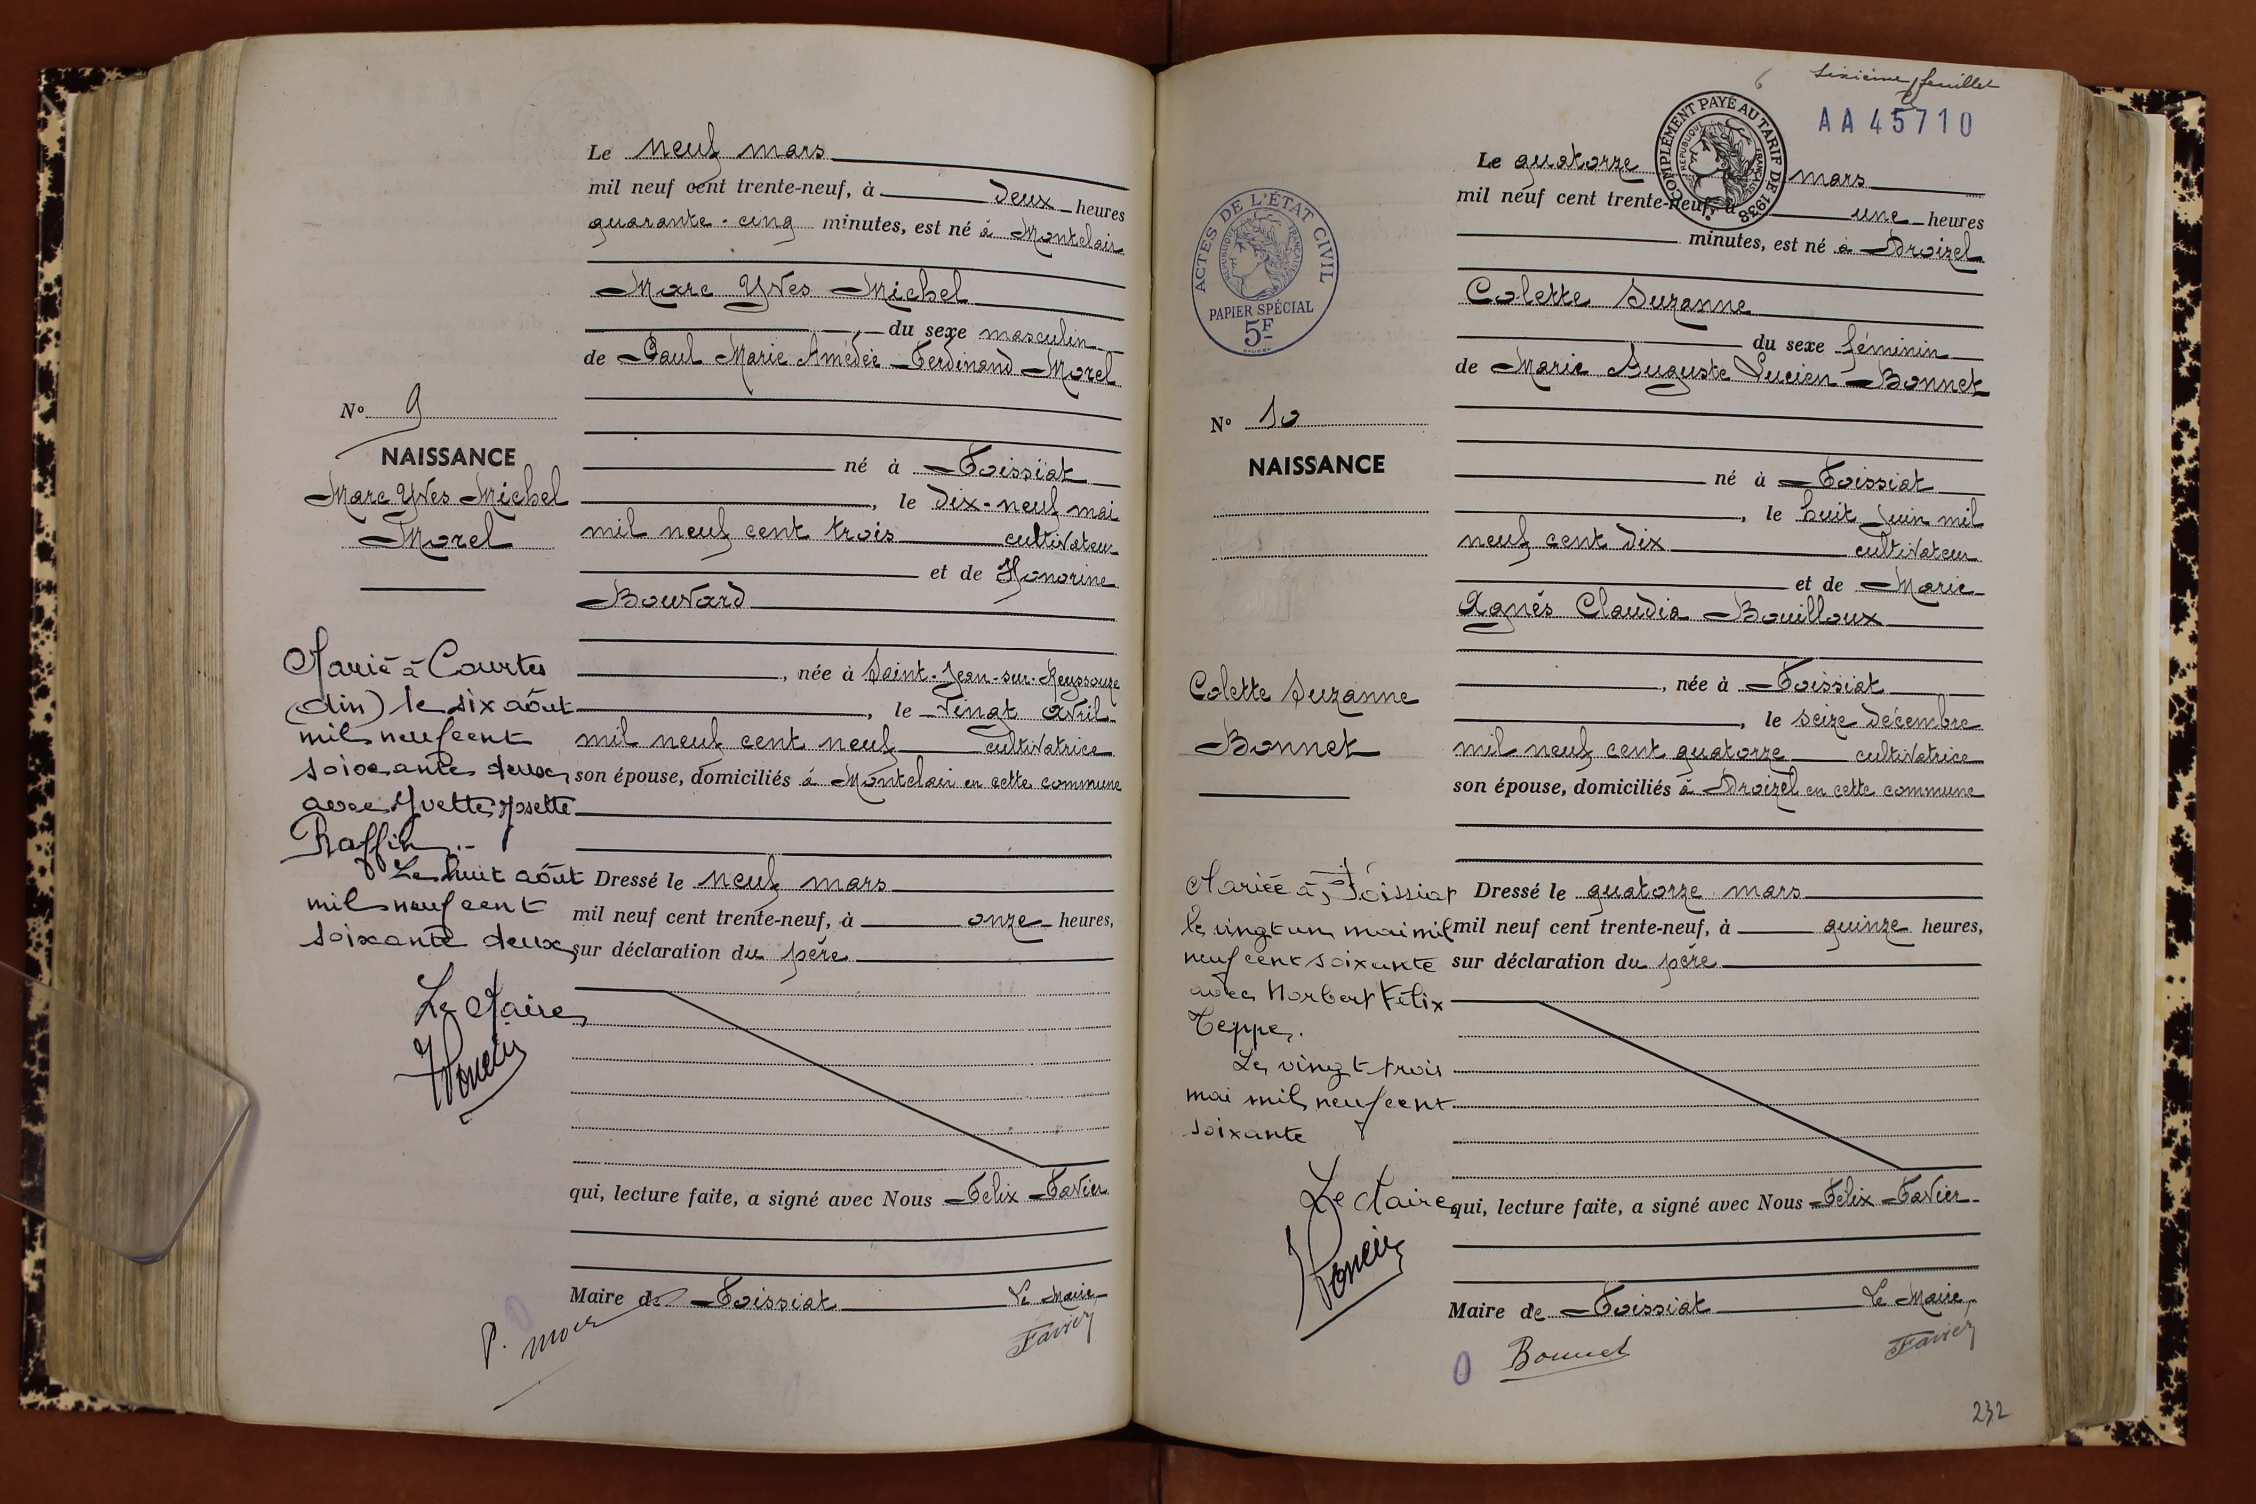 Le neuf mars
mil neuf cent trente-neuf, à deux heures
quarante-cinq minutes, est né à Montclair
Marc Yves Michel
, du sexe masculin
de Paul Marie Amédée Ferdinand Morel
né à Foissiat
, le dix-neuf mai
mil neuf cent trois cultivateur
et de Honorine
Bouvard
, née à Saint-Jean-sur-Reyssouze
, le vingt avril
mil neuf cent neuf cultivatrice
son épouse, domiciliés à Montclair en cette commune
Dressé le neuf mars
mil neuf cent trente-neuf, à onze heures,
sur déclaration du père
qui, lecture faite, a signé avec Nous Felix Favier
Maire de Foissiat Le Maire
P. Morel Favier
N° 9
NAISSANCE
Marc Yves Michel
Morel
Marié à Courtes
(Ain) le six août
mil neuf cent
soixante deux
avec Yvette Josette
Raffin.-
Le huit août
mil neuf cent
soixante deux
Le Maire
6 Sixième feuillet
AA45710
COMPLÉMENT PAYÉ AU TARIF DE 1938
RÉPUBLIQUE FRANÇAISE
Le quatorze mars
mil neuf cent trente-neuf, à une heures
minutes, est né à Droizel
Colette Suzanne
du sexe féminin
de Marie Auguste Lucien Bonnet
né à Foissiat
, le huit Juin mil
neuf cent dix cultivateur
et de Marie
Agnès Claudia Bouilloux
, née à Foissiat
, le seize décembre
mil neuf cent quatorze cultivatrice
son épouse, domiciliés à Droizel en cette commune
Dressé le quatorze mars
mil neuf cent trente-neuf, à quinze heures,
sur déclaration du père
qui, lecture faite, a signé avec Nous Felix Favier
Maire de Foissiat Le Maire
Bonnet Favier
ACTES DE L'ÉTAT CIVIL
RÉPUBLIQUE FRANÇAISE
PAPIER SPÉCIAL
5F
N° 10
NAISSANCE
Colette Suzanne
Bonnet
Mariée à Foissiat
le vingt un mai mil
neuf cent soixante
avec Norbert Félix
Teppe.
Le vingt trois
mai mil neuf cent
soixante
Le Maire
232